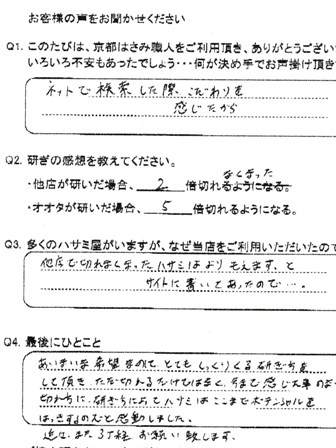 お客様の声をお聞かせください
Q1. このたびは、京都はさみ職人をご利用頂き、ありがとうござい
いろいろ不安もあったでしょう・・・何が決め手でお声掛け頂き
ネットで検索した際、こだわりを
感じたから
Q2. 研ぎの感想を教えてください。
なくなった
・他店が研いだ場合、 2 倍切れるようになる。
・オオタが研いだ場合、 5 倍切れるようになる。
Q3. 多くのハサミ屋がいますが、なぜ当店をご利用いただいたので
他店で切れなくなったハサミはよりもえます、と
サイトに書いてあったので…。
Q4. 最後にひとこと
あいまいな希望なのに とても しっくりくる 研ぎを
して頂き、ただ切れるだけではなく、今まで感じた事のな
切れ方に、研ぎによってハサミは ここまで ポテンシャルを
はっきするのんだと感動しました。
近々、また3丁程 お願い致します。